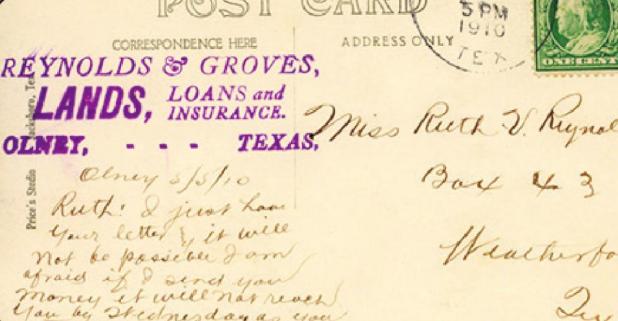 POST CARD
5 PM
1910
TEX
ONE CENT
CORRESPONDENCE HERE
ADDRESS ONLY
REYNOLDS & GROVES,
LANDS, LOANS and INSURANCE.
OLNEY, - - - TEXAS,
Price's Studio Jacksboro, Tex
Olney 3/5/10
Ruth: I just have
your letter & it will
not be possible I am
afraid if I send you
money it will not reach
you by Wednesday as you
Miss Ruth V. Reynol
Box 43
Weatherfo